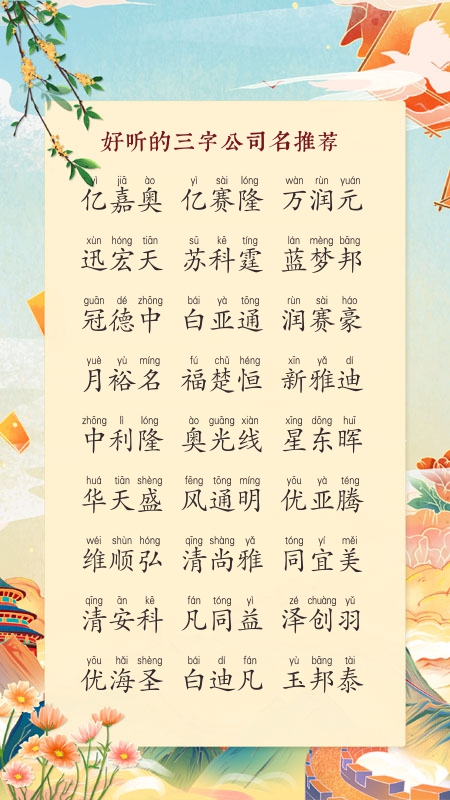 好听的三字公司名推荐
yì jiā ào yì sài lóng wàn rùn yuán
亿嘉奥 亿赛隆 万润元
xùn hóng tiān sū kē tíng lán mèng bāng
迅宏天 苏科霆 蓝梦邦
guān dé zhōng bái yà tōng rùn sài háo
冠德中 白亚通 润赛豪
yuè yù míng fú chǔ héng xīn yǎ dí
月裕名 福楚恒 新雅迪
zhōng lì lóng ào guāng xiàn xīng dōng huī
中利隆 奥光线 星东晖
huá tiān shèng fēng tōng míng yōu yà téng
华天盛 风通明 优亚腾
wéi shùn hóng qīng shàng yǎ tóng yí měi
维顺弘 清尚雅 同宜美
qīng ān kē fán tóng yì zé chuàng yǔ
清安科 凡同益 泽创羽
yōu hǎi shèng bái dí fán yù bāng tài
优海圣 白迪凡 玉邦泰